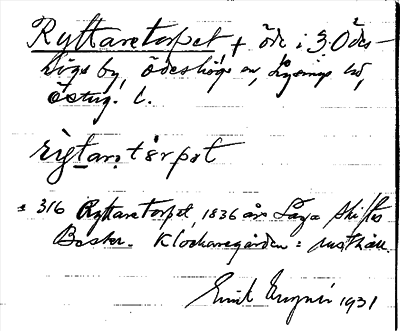 Ryttaretorpet + öde i 3. Ödes-
högs by, Ödeshögs sn, Lysings hd,
Östug. l.
rỳtarətɔrpət
316 Ryttaretorpet, 1836 års Laga Skiftes
Beskr. Klockaregården = rusthåll.
Emil 1931